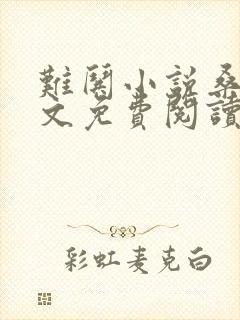 難鬨小說桑
文免費閱讀
彩虹麦克白